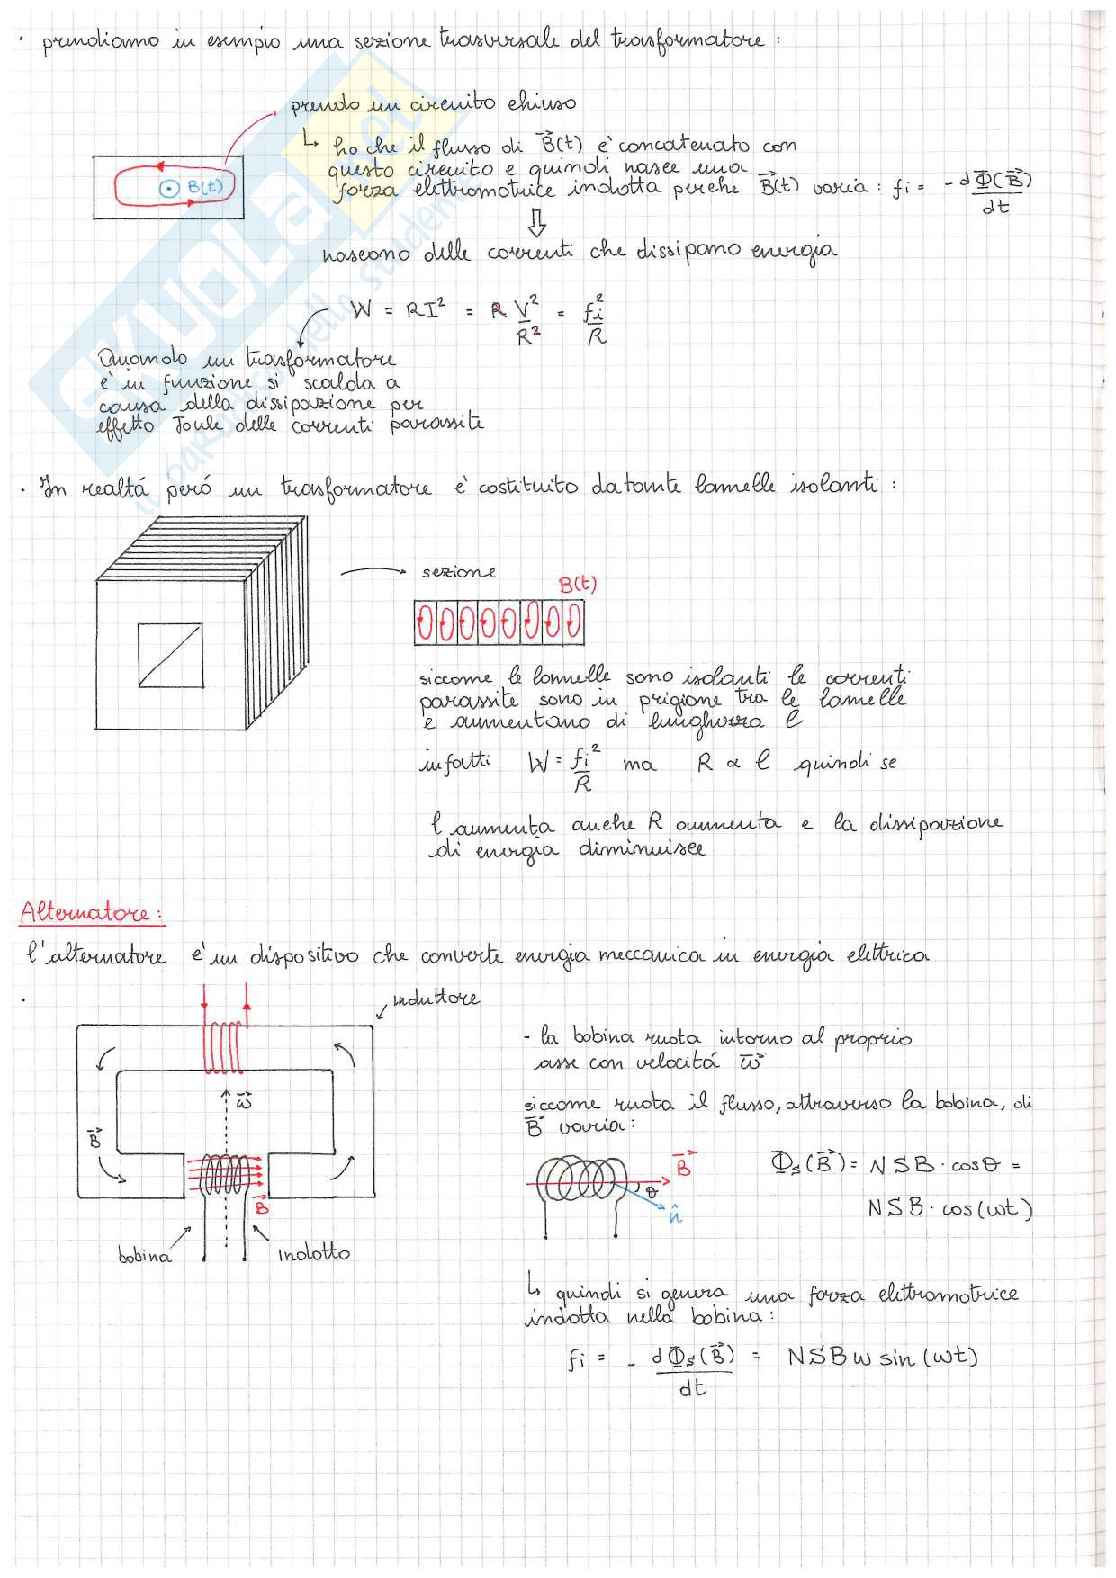 · prendiamo in esempio una sezione trasversale del trasformatore :
prendo un circuito chiuso
↳ ho che il flusso di B⃗(t) è concatenato con
questo circuito e quindi nasce una
forza elettromotrice indotta perché B⃗(t) varia : fi = - dΦ(B⃗)/dt
B(t)
⇓
nascono delle correnti che dissipano energia
W = RI² = R V²/R² = fi²/R
Quando un trasformatore
è in funzione si scalda a
causa della dissipazione per
effetto Joule delle correnti parassite
· In realtá peró un trasformatore è costituito da tante lamelle isolanti :
sezione
B(t)
siccome le lamelle sono isolanti le correnti
parassite sono in prigione tra le lamelle
e aumentano di lunghezza l
infatti W = fi²/R ma R ∝ l quindi se
l aumenta anche R aumenta e la dissipazione
di energia diminuisce
Alternatore :
l'alternatore è un dispositivo che converte energia meccanica in energia elettrica
induttore
- la bobina ruota intorno al proprio
asse con velocitá ω⃗
siccome ruota il flusso, attraverso la bobina, di
B⃗ varia :
ω⃗
B⃗
B⃗
bobina
indotto
B⃗
θ
n̂
Φs(B⃗) = NSB · cosθ =
NSB · cos(ωt)
↳ quindi si genera una forza elettromotrice
indotta nella bobina :
fi = - dΦs(B⃗)/dt = NSBω sin(ωt)
SKUOLA